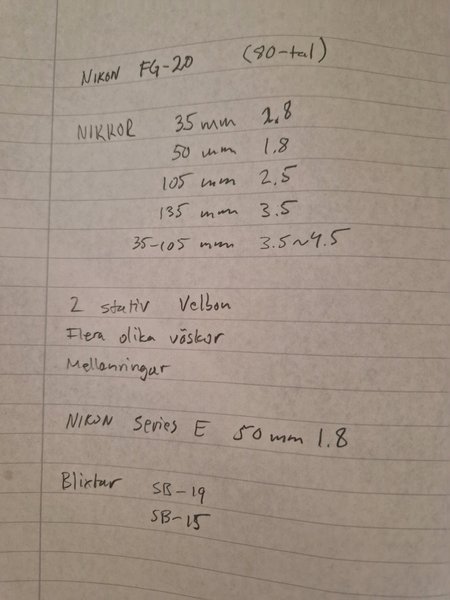 NIKON FG-20 (80-tal)
NIKKOR 35 mm 2.8
50 mm 1.8
105 mm 2.5
135 mm 3.5
35-105 mm 3.5~4.5
2 stativ Velbon
Flera olika väskor
Mellanringar
NIKON Series E 50mm 1.8
Blixtar SB-19
SB-15